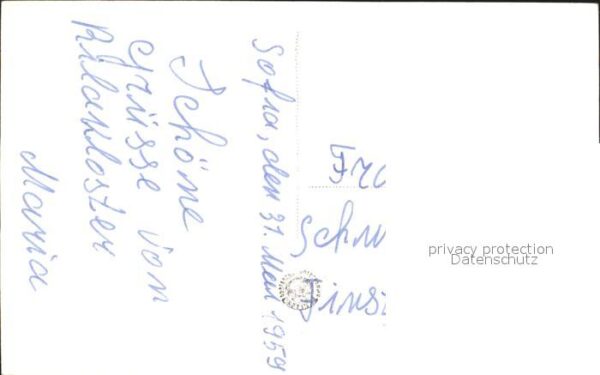 Sofia, den 31. Mai 1959
Schöne
Grüsse von
Rilakloster
Maria
privacy protection
Datenschutz